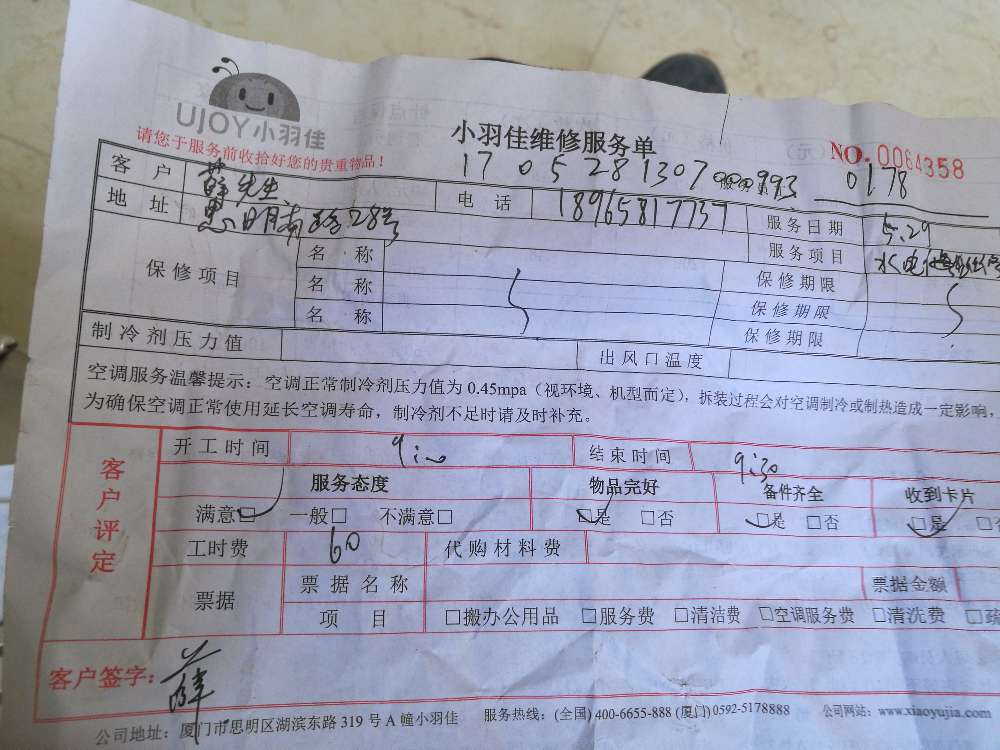 UJOY小羽佳
请您于服务前收拾好您的贵重物品！
小羽佳维修服务单
NO. 0064358
17 05 281307
993 0178
客户 薛先生 电话 18965817737 服务日期 5.29
地址 思明南路28号 服务项目 水电
保修项目 名称 保修期限
名称 保修期限
名称 保修期限
制冷剂压力值 出风口温度
空调服务温馨提示：空调正常制冷剂压力值为 0.45mpa（视环境、机型而定），拆装过程会对空调制冷或制热造成一定影响，
为确保空调正常使用延长空调寿命，制冷剂不足时请及时补充。
客户评定
开工时间 9:00 结束时间 9:30
服务态度 物品完好 备件齐全 收到卡片
满意□ 一般□ 不满意□ □是 □否 □是 □否 □是
工时费 60 代购材料费
票据 票据名称 票据金额
项目 □搬办公用品 □服务费 □清洁费 □空调服务费 □清洗费 □疏
客户签字： 薛
公司地址：厦门市思明区湖滨东路 319 号 A 幢小羽佳 服务热线：(全国) 400-6655-888 (厦门) 0592-5178888 公司网站：www.xiaoyujia.com